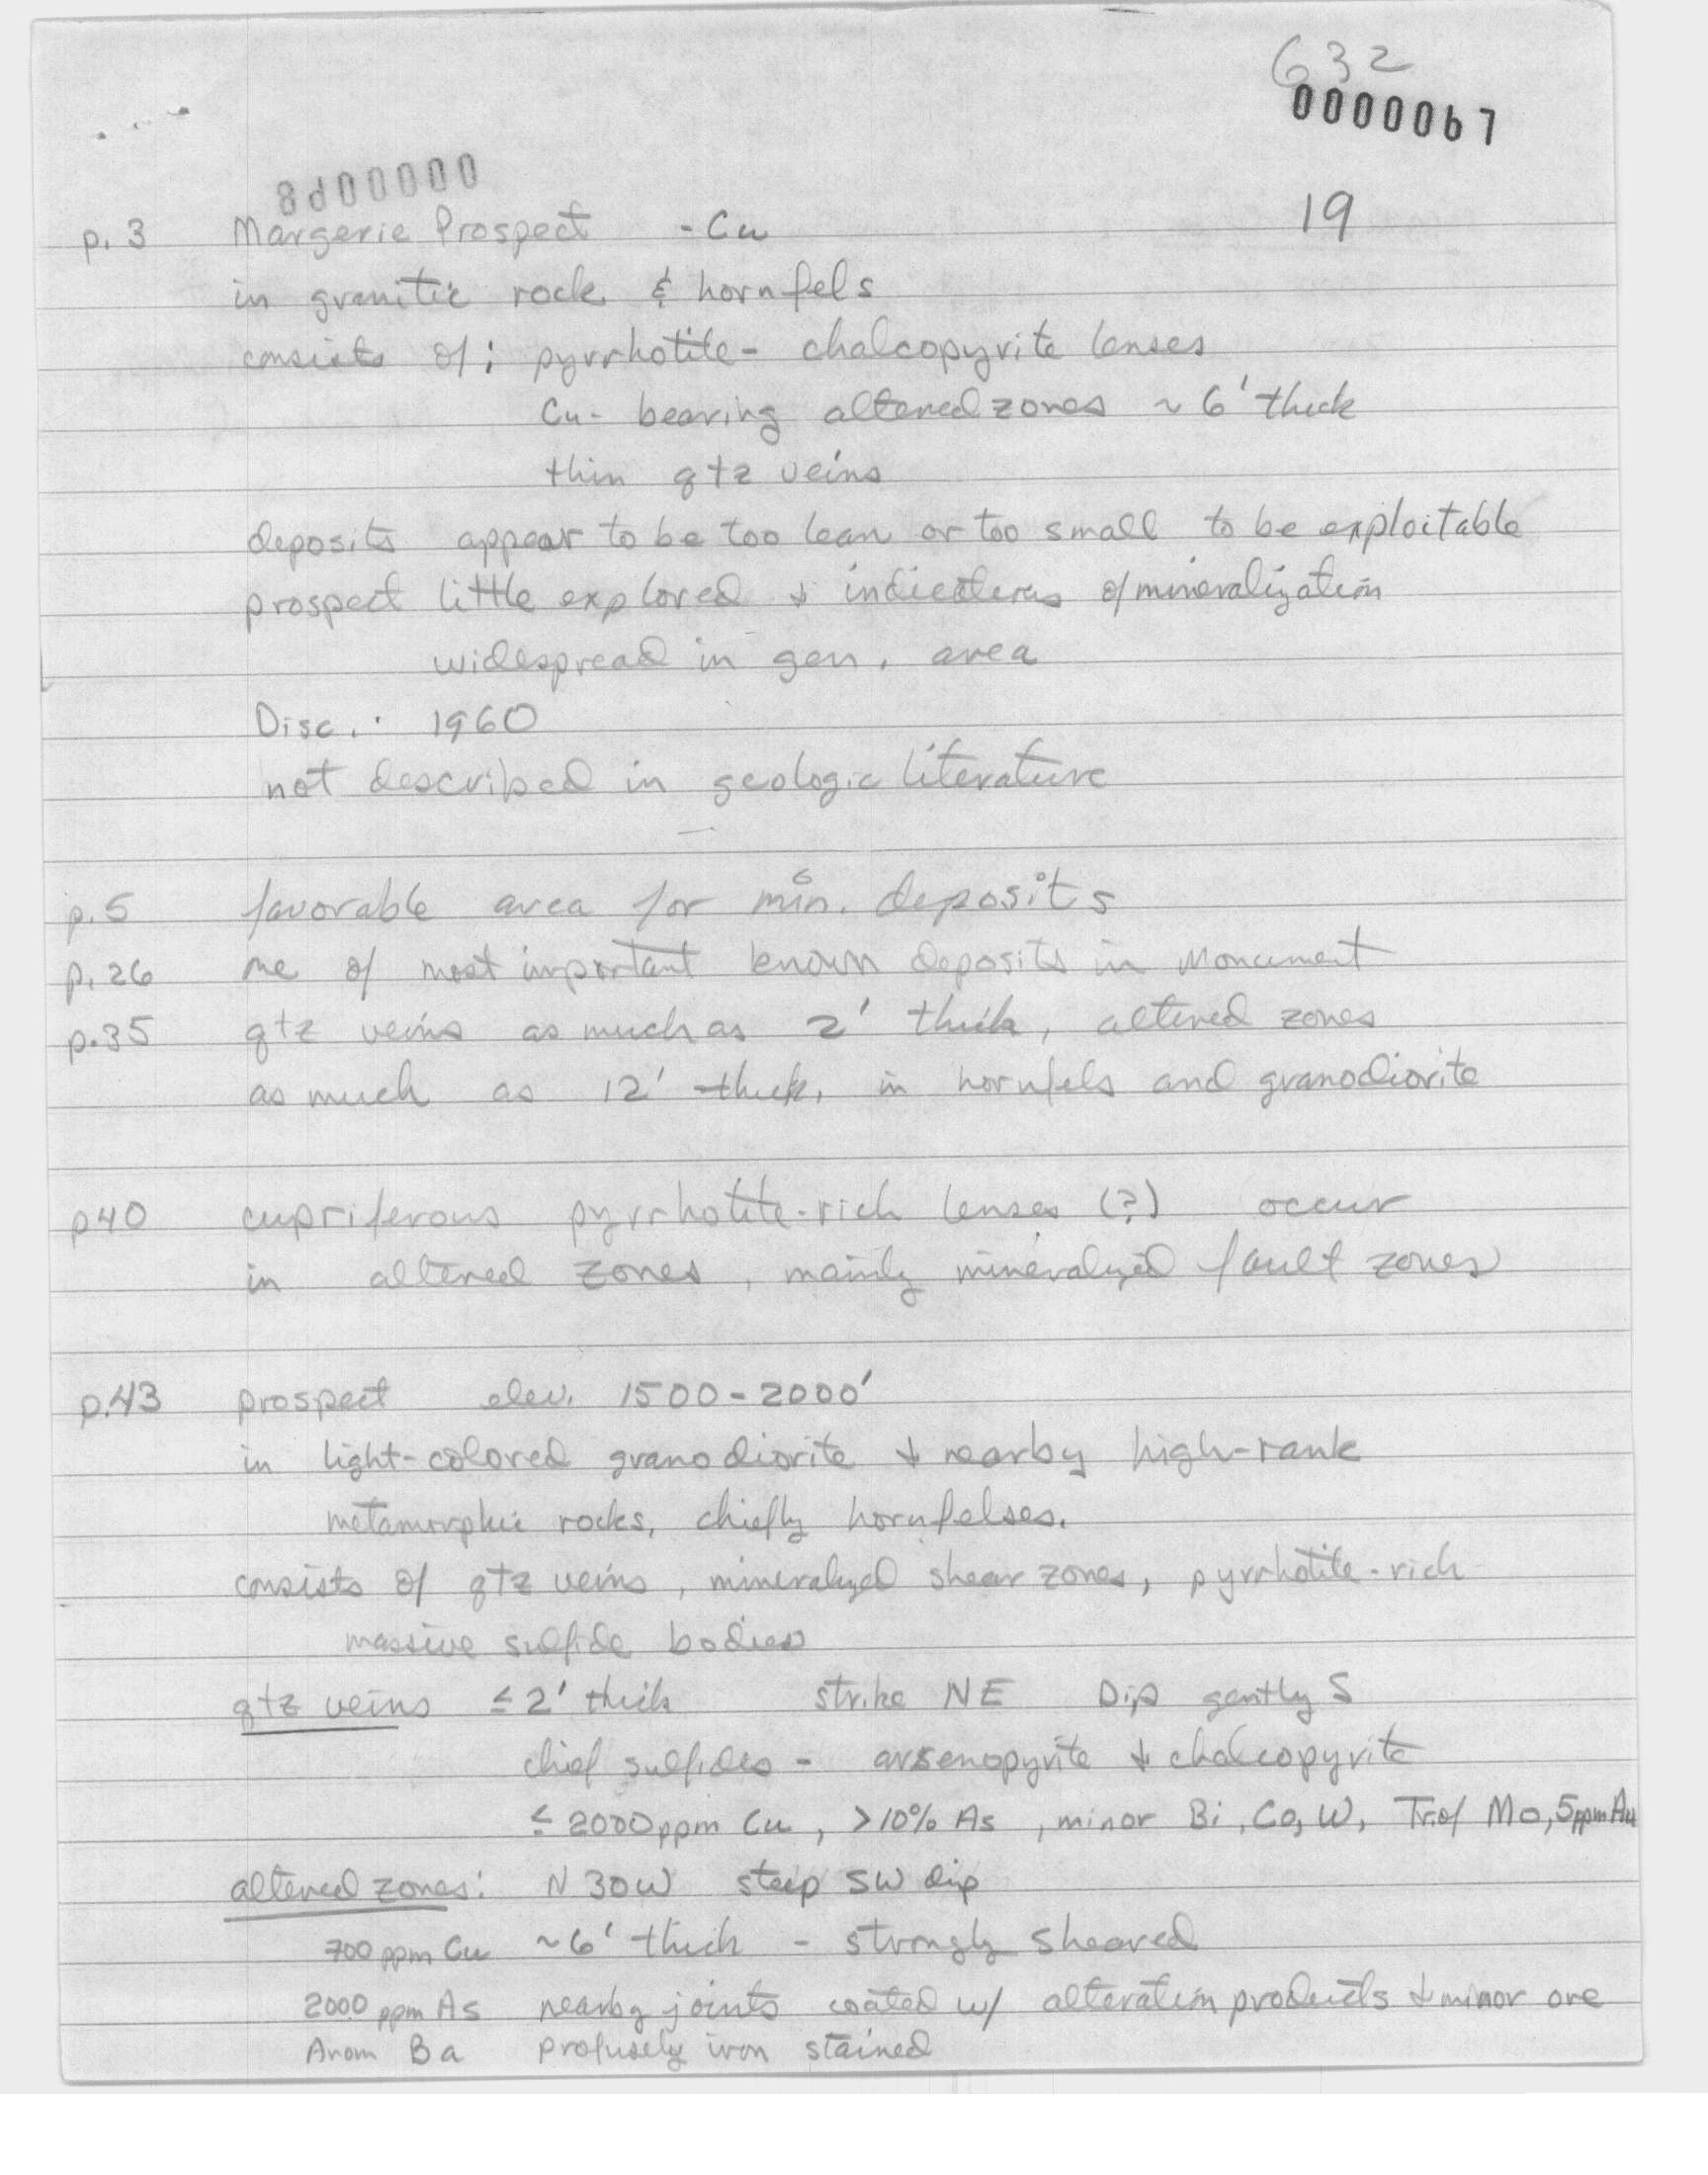 632
0000067
19
p. 3 Margerie Prospect - Cu
in granitic rock & hornfels
consists of: pyrrhotite - chalcopyrite lenses
Cu- bearing altered zones ~ 6' thick
thin qtz veins
deposits appear to be too lean or too small to be exploitable
prospect little explored & indications of mineralization
widespread in gen. area
Disc.: 1960
not described in geologic literature
p. 5 favorable area for min. deposits
p. 26 one of most important known deposits in Monument
p. 35 qtz veins as much as 2' thick, altered zones
as much as 12' thick, in hornfels and granodiorite
p40 cupriferous pyrrhotite-rich lenses (?) occur
in altered zones, mainly mineralized fault zones
p.43 prospect elev. 1500-2000'
in light-colored granodiorite & nearby high-rank
metamorphic rocks, chiefly hornfelses.
consists of qtz veins, mineralized shear zones, pyrrhotite-rich
massive sulfide bodies
qtz veins ≤2' thick strike NE Dip gently S
chief sulfides - arsenopyrite & chalcopyrite
≤ 2000ppm Cu, >10% As, minor Bi, Co, W, Tr. of Mo, 5ppm Au
altered zones: N30W steep SW dip
700 ppm Cu ~6' thick - strongly sheared
2000 ppm As nearby joints coated w/ alteration products & minor ore
Anom Ba profusely iron stained